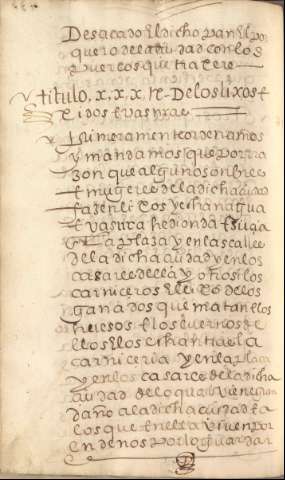 De sacado El dicho pan El por
quero de la ciudad con los
puercos que tiae re
titulo. x. x. x. re. De los lixos E
Ri dos E vasurae
Primeramente ordenamos
y mandamos que por rra
zon que algunos onbres
E mugeres de la dicha ciudad
fazen lixos y echan agua
E vasura hedionda E suzia
En la plaza y en las calles
de la dicha ciudad y en los
casares della y otrosi los
carniceros El lixo de los
ganados que matan E los
huesos E los cuernos de
ellos E los echan tras la
carniceria y en la plaza
y en los casares de la dicha
ciudad de lo qual viene grand
daño a la dicha ciudad E a
los que en ella viven por
En de nos por lo guardar